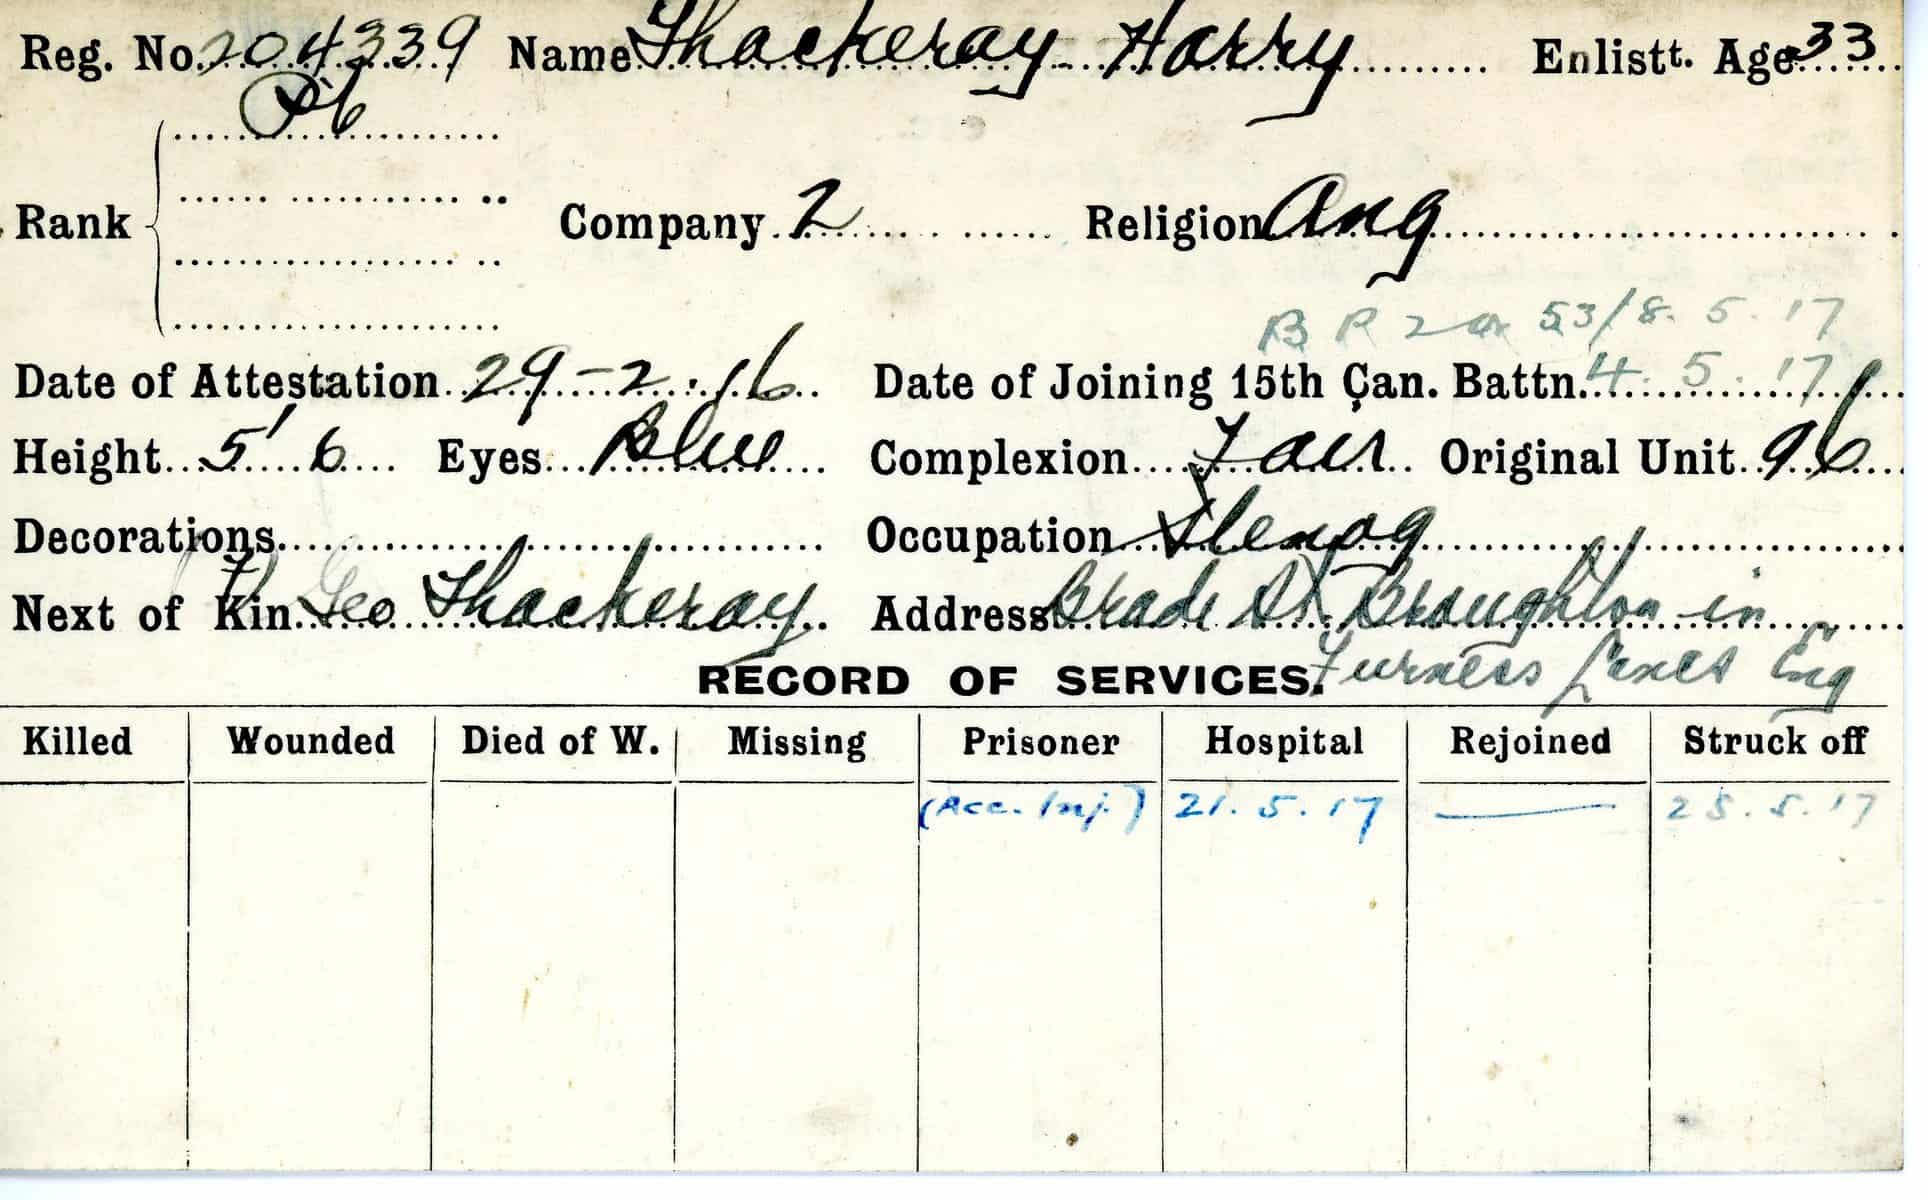 Reg. No. 204339 Name Thackeray Harry Enlistt. Age 33
Rank Company 2 Religion Ang
53/8.5.17
Date of Attestation 29-2-16 Date of Joining 15th Can. Battn. 4.5.17
Height 5' 6 Eyes Blue Complexion Fair Original Unit 96
Decorations Occupation Stenog
Next of Kin F Geo Thackeray Address Brade St. Broughton-in
RECORD OF SERVICES. Furness Lancs Eng
Killed Wounded Died of W. Missing Prisoner Hospital Rejoined Struck off
(Acc. Inj.) 21.5.17 — 25.5.17